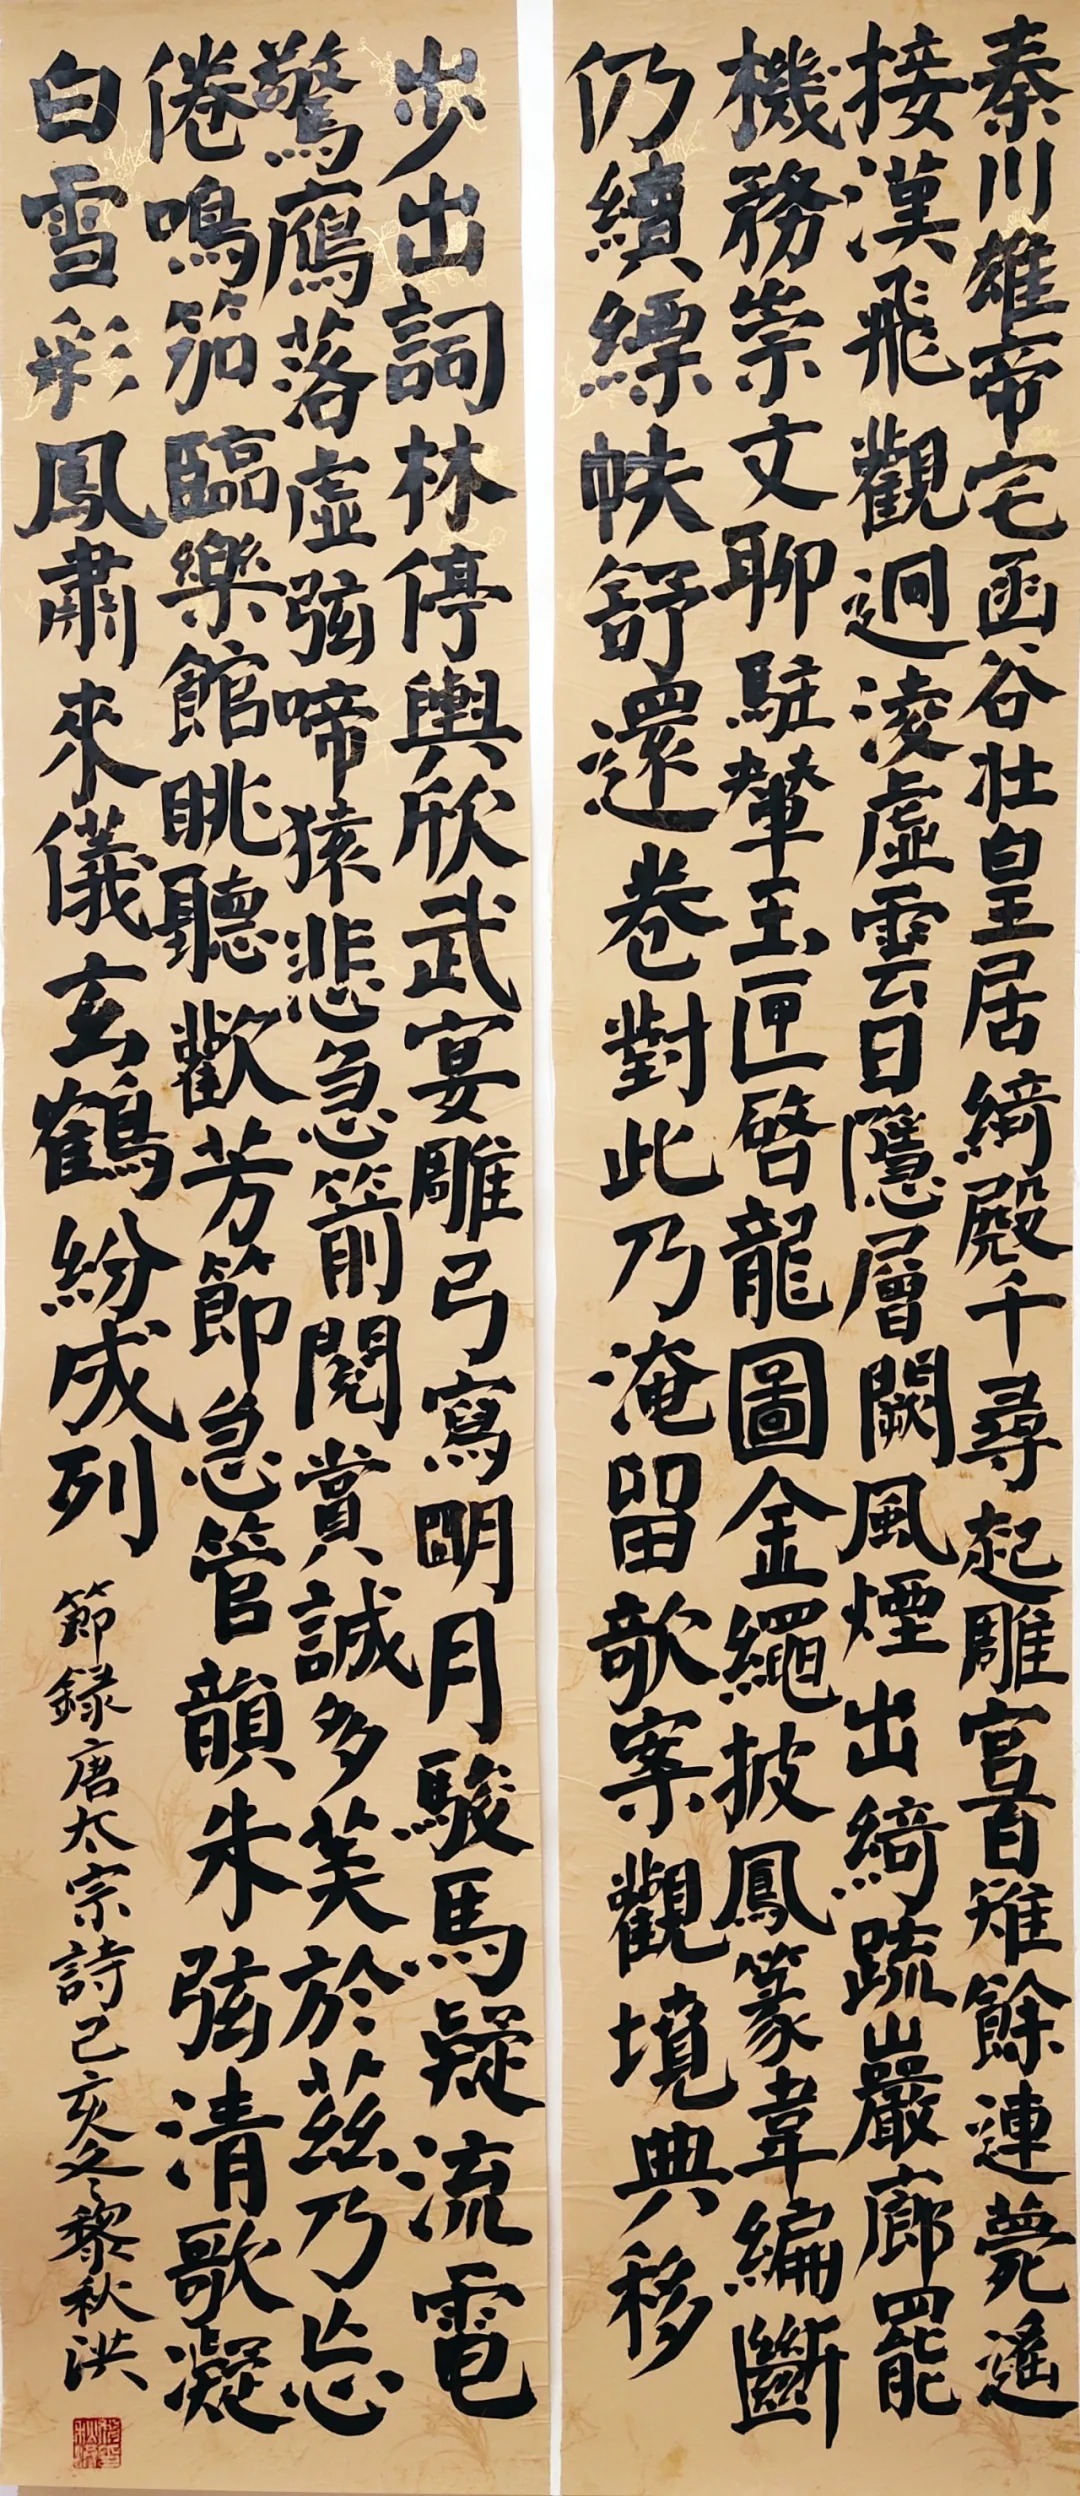 秦川雄帝宅函谷壯皇居綺殿千尋起雕宮百雉餘連甍遙
接漢飛觀迥淩虛雲日隱層闕風煙出綺疏巖廊罷
機務崇文聊駐輦玉匣啓龍圖金繩披鳳篆韋編斷
仍續縹帙舒還卷對此乃淹留欹案觀墳典移
步出詞林停輿欣武宴雕弓寫明月駿馬疑流電
驚鴈落虛弦啼猿悲急箭閱賞誠多美於茲乃忘
倦鳴笳臨樂館眺聽歡芳節急管韻朱弦清歌凝
白雪彩鳳肅來儀玄鶴紛成列
節録唐太宗詩己亥冬黎秋洪